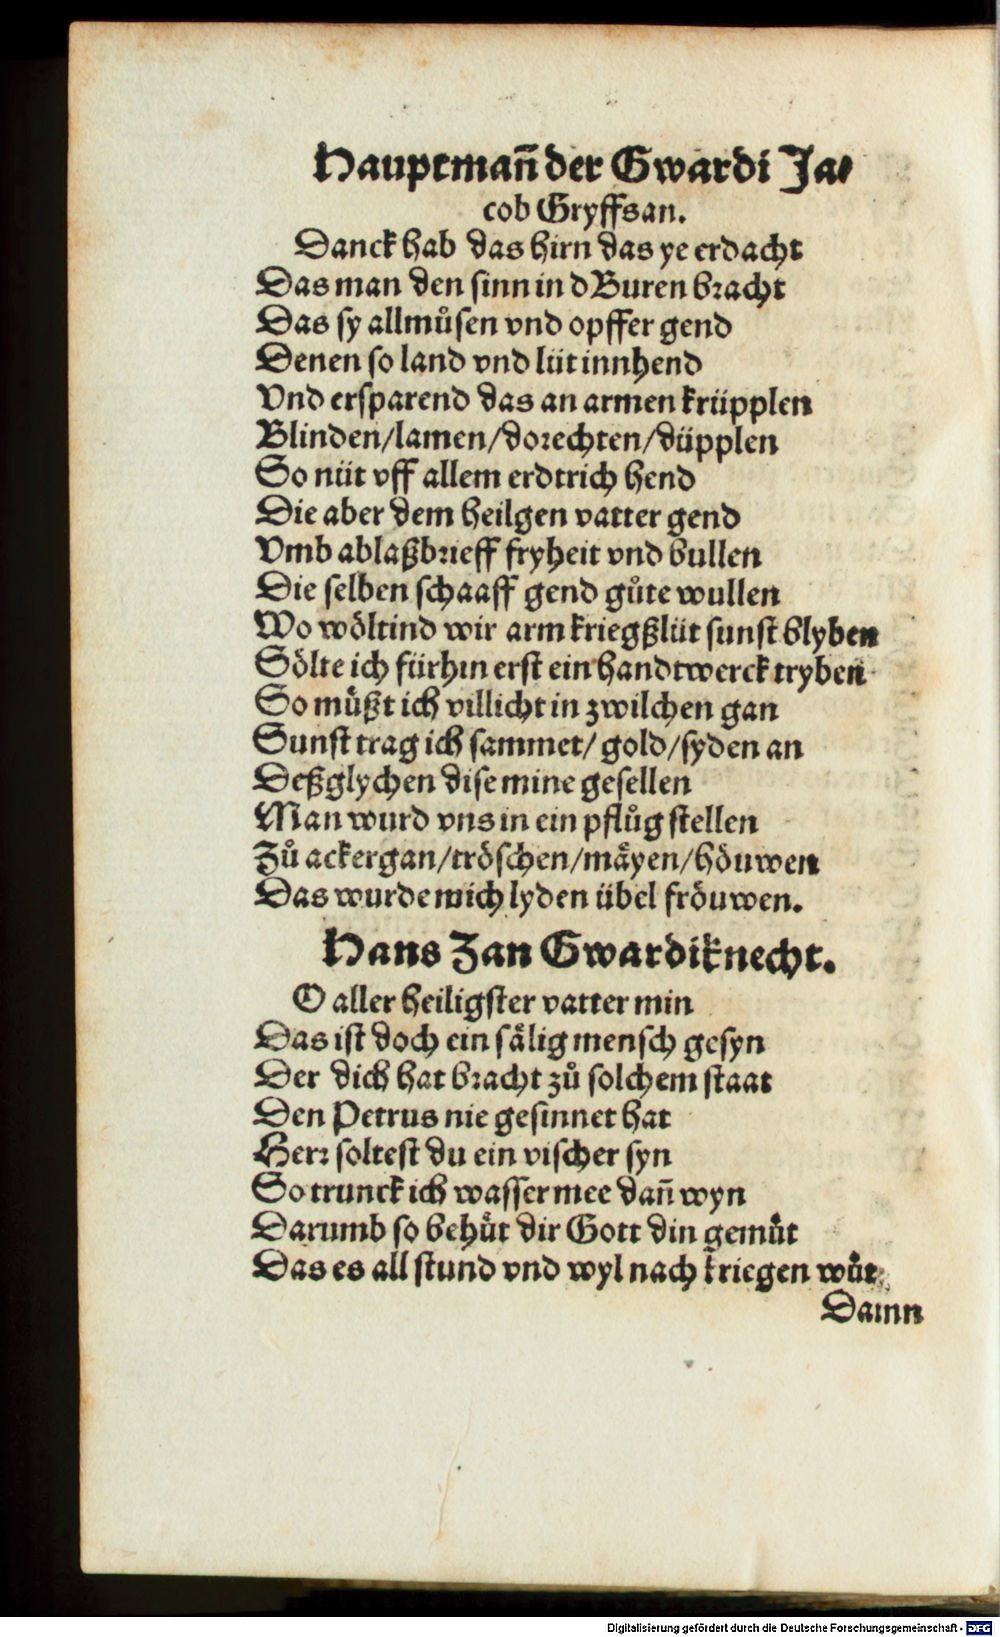 Hauptmañ der Gwardi Ja⸗
cob Gryffsan.
Danck hab das hirn das ye erdacht
Das man den sinn in d Buren bracht
Das sy allmůsen vnd opffer gend
Denen so land vnd lüt innhend
Vnd ersparend das an armen krüpplen
Blinden/lamen/dorechten/düpplen
So nüt vff allem erdtrich hend
Die aber dem heilgen vatter gend
Vmb ablaßbrieff fryheit vnd bullen
Die selben schaaff gend gůte wullen
Wo wöltind wir arm kriegßlüt sunst blyben
Sölte ich fürhin erst ein handtwerck tryben
So müßt ich villicht in zwilchen gan
Sunst trag ich sammet/ gold/syden an
Deßglychen dise mine gesellen
Man wurd vns in ein pflůg stellen
Zů ackergan/tröschen/mäyen/höuwen
Das wurde mich lyden übel fröuwen.
Hans Zan Gwardiknecht.
O aller heiligster vatter min
Das ist doch ein sälig mensch gesyn
Der dich hat bracht zů solchem staat
Den Petrus nie gesinnet hat
Herr soltest du ein vischer syn
So trunck ich wasser mee dañ wyn
Darumb so behüt dir Gott din gemüt
Das es all stund vnd wyl nach kriegen wüt
Damn
Digitalisierung gefördert durch die Deutsche Forschungsgemeinschaft - DFG